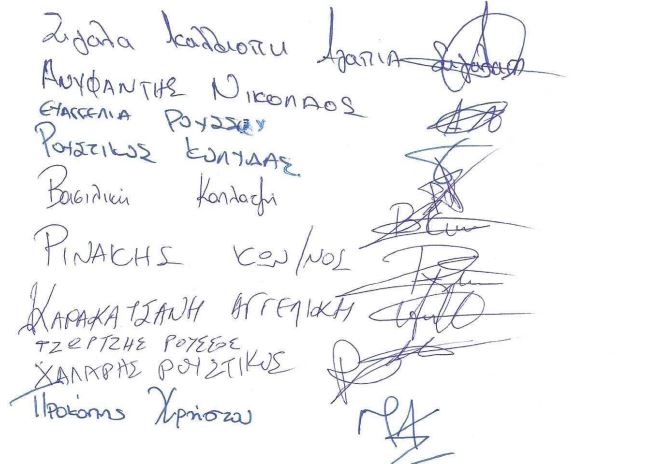 Σιγάλα Καλλιόπη Αγαπία
ΑΝΥΦΑΝΤΗΣ ΝΙΚΟΛΑΟΣ
ΕΥΑΓΓΕΛΙΑ ΡΟΥΣΣΟΥ
ΡΟΥΣΤΙΚΟΣ ΚΟΛΥΔΑΣ
Βασιλική
ΡΙΝΑΚΗΣ ΚΩΝ/ΝΟΣ
ΚΑΡΑΚΑΤΣΑΝΗ ΑΓΓΕΛΙΚΗ
ΤΖΩΡΤΖΗΣ ΡΟΥΣΣΟΣ
ΧΑΛΑΡΗΣ ΡΟΥΣΤΙΚΟΣ
Προκόπης Χρήστου